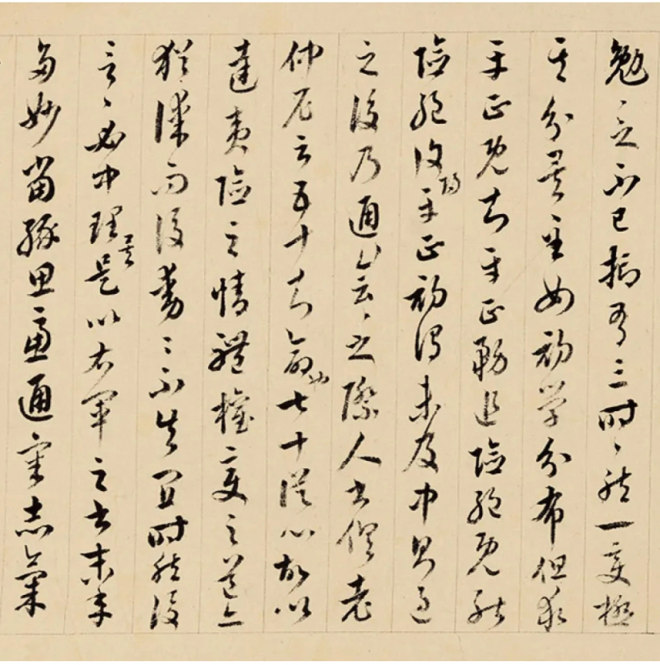 勉之不已抑有三時〻然一變極
其分矣至如初學分布但求
平正既知平正務追險絕既能
險絕復歸平正初謂未及中則過
之後乃通會〻之際人書俱老
仲尼云五十知命也七十從心故以
達夷險之情體權變之道亦
猶謀而後動〻不失宜時然後
言〻必中理矣是以右軍之書末年
多妙當緣思慮通審志氣